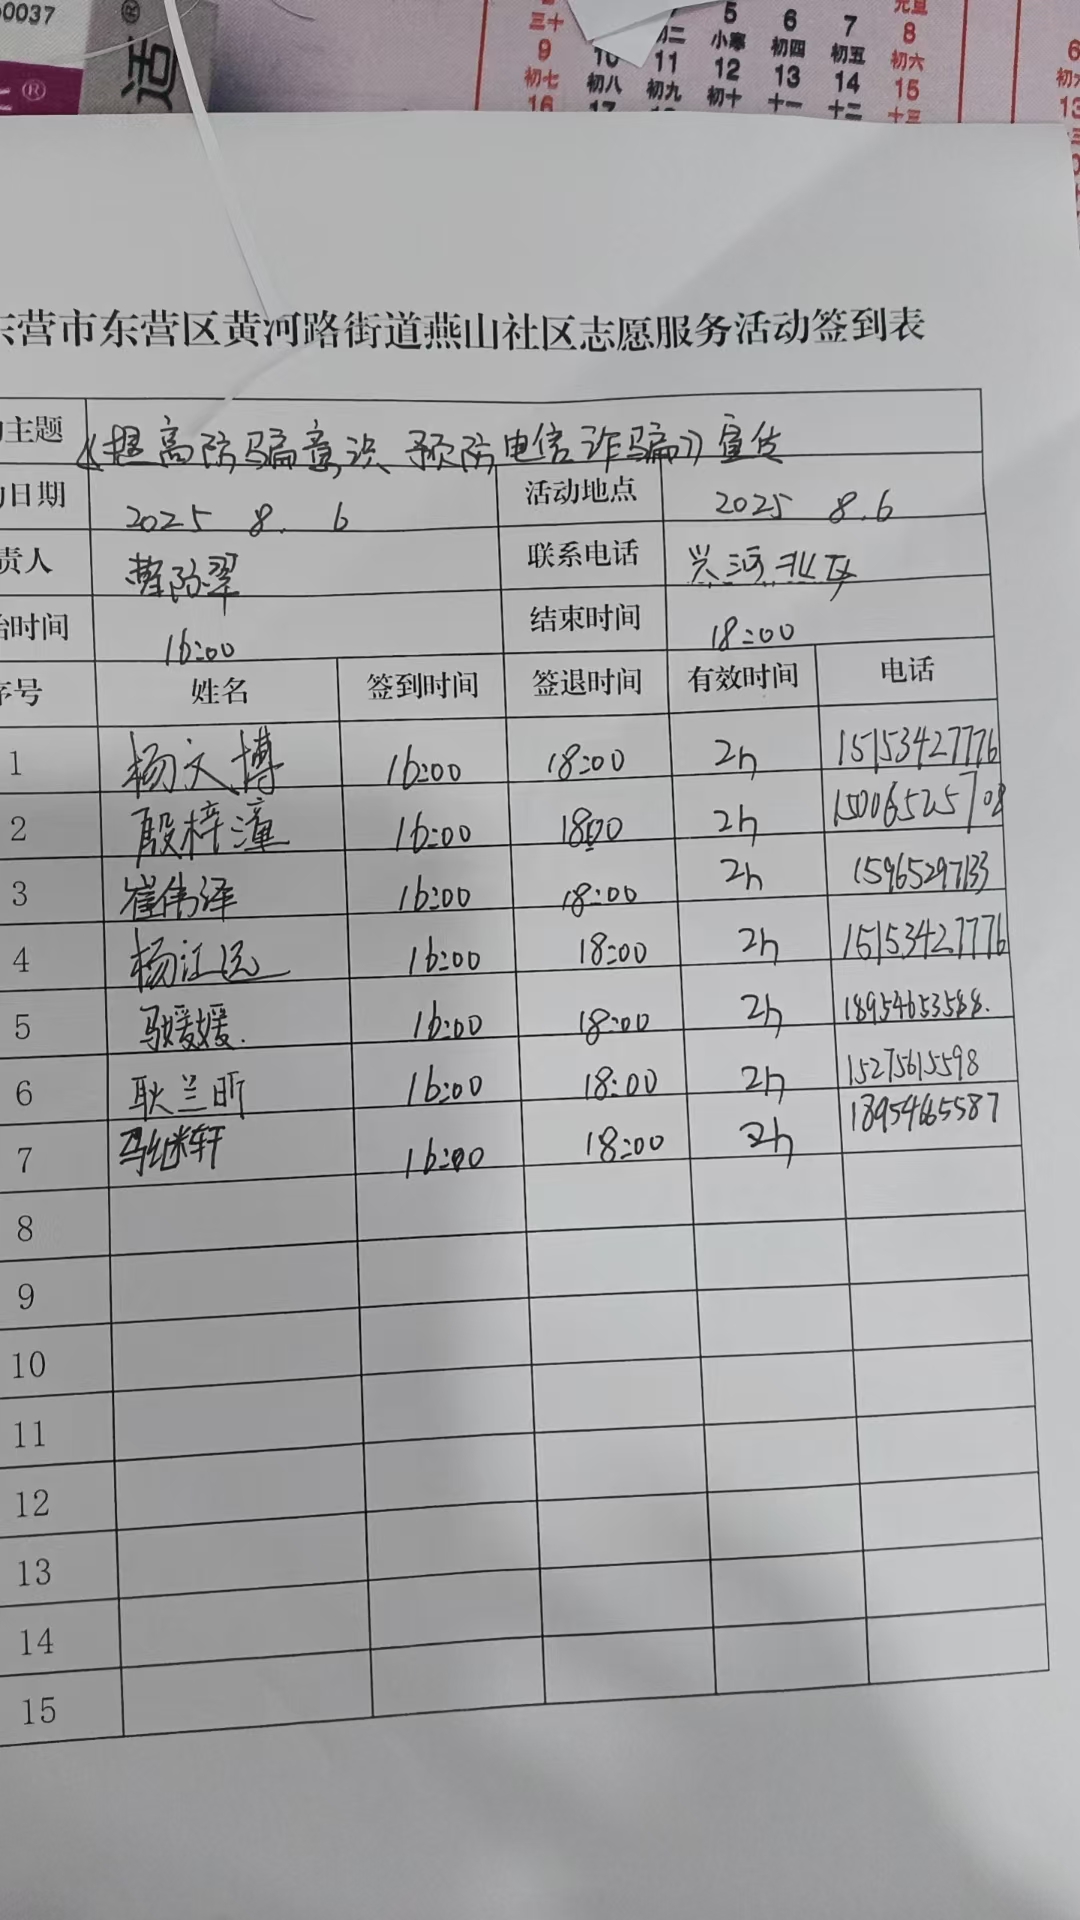 0037
®
活
®
5 6 7 8
三十 初二 小寒 初四 初五 初六
9 10 11 12 13 14 15
初七 初八 初九 初十 十一 十二 十三
16 17
东营市东营区黄河路街道燕山社区志愿服务活动签到表
动主题 《提高防骗意识 预防电信诈骗》宣传
动日期 2025 8. 6 活动地点 2025 8.6
责人 联系电话 兴河北区
始时间 16:00 结束时间 18:00
序号 姓名 签到时间 签退时间 有效时间 电话
1 杨文博 16:00 18:00 2h 15153427776
2 殷梓潼 16:00 18:00 2h 15006525708
3 崔伟泽 16:00 18:00 2h 15965297133
4 杨江远 16:00 18:00 2h 15153427776
5 马媛媛. 16:00 18:00 2h 18954653588.
6 耿兰昕 16:00 18:00 2h 15275615598
7 马继轩 16:00 18:00 2h 18954665587
8
9
10
11
12
13
14
15